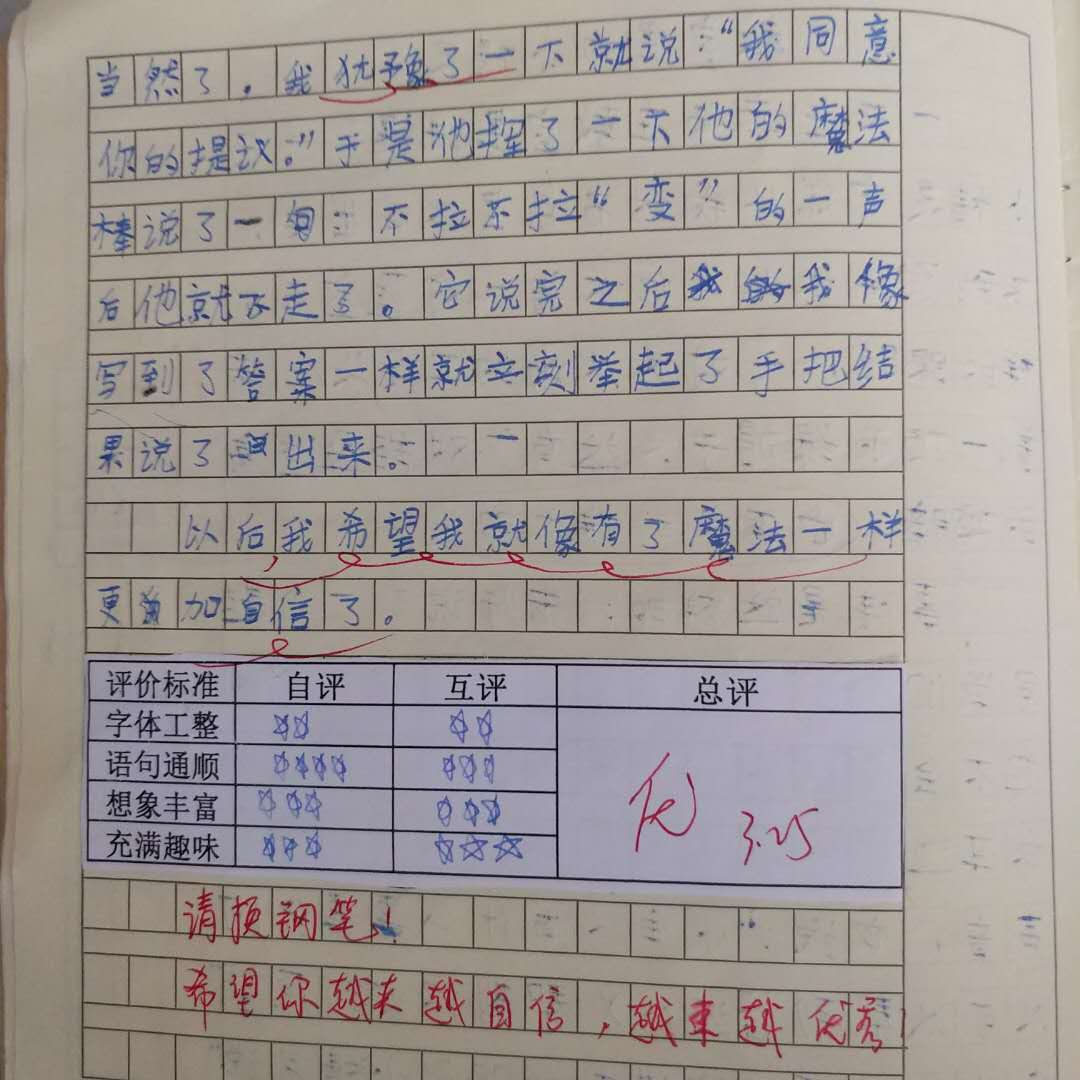 当然了，我犹豫了一下就说：“我同意
你的提议。”于是他挥了一下他的魔法
棒说了一句：不拉不拉“变”的一声
后他就飞走了。它说完之后我像
写到了答案一样就立刻举起了手把结
果说了出来。
以后我希望我就像有了魔法一样
更加自信了。
评价标准 自评 互评 总评
字体工整 ☆☆ ☆☆
语句通顺 ☆☆☆☆ ☆☆☆
想象丰富 ☆☆☆ ☆☆☆
充满趣味 ☆☆☆ ☆☆☆
优 3.25
请换钢笔！
希望你越来越自信，越来越优秀！